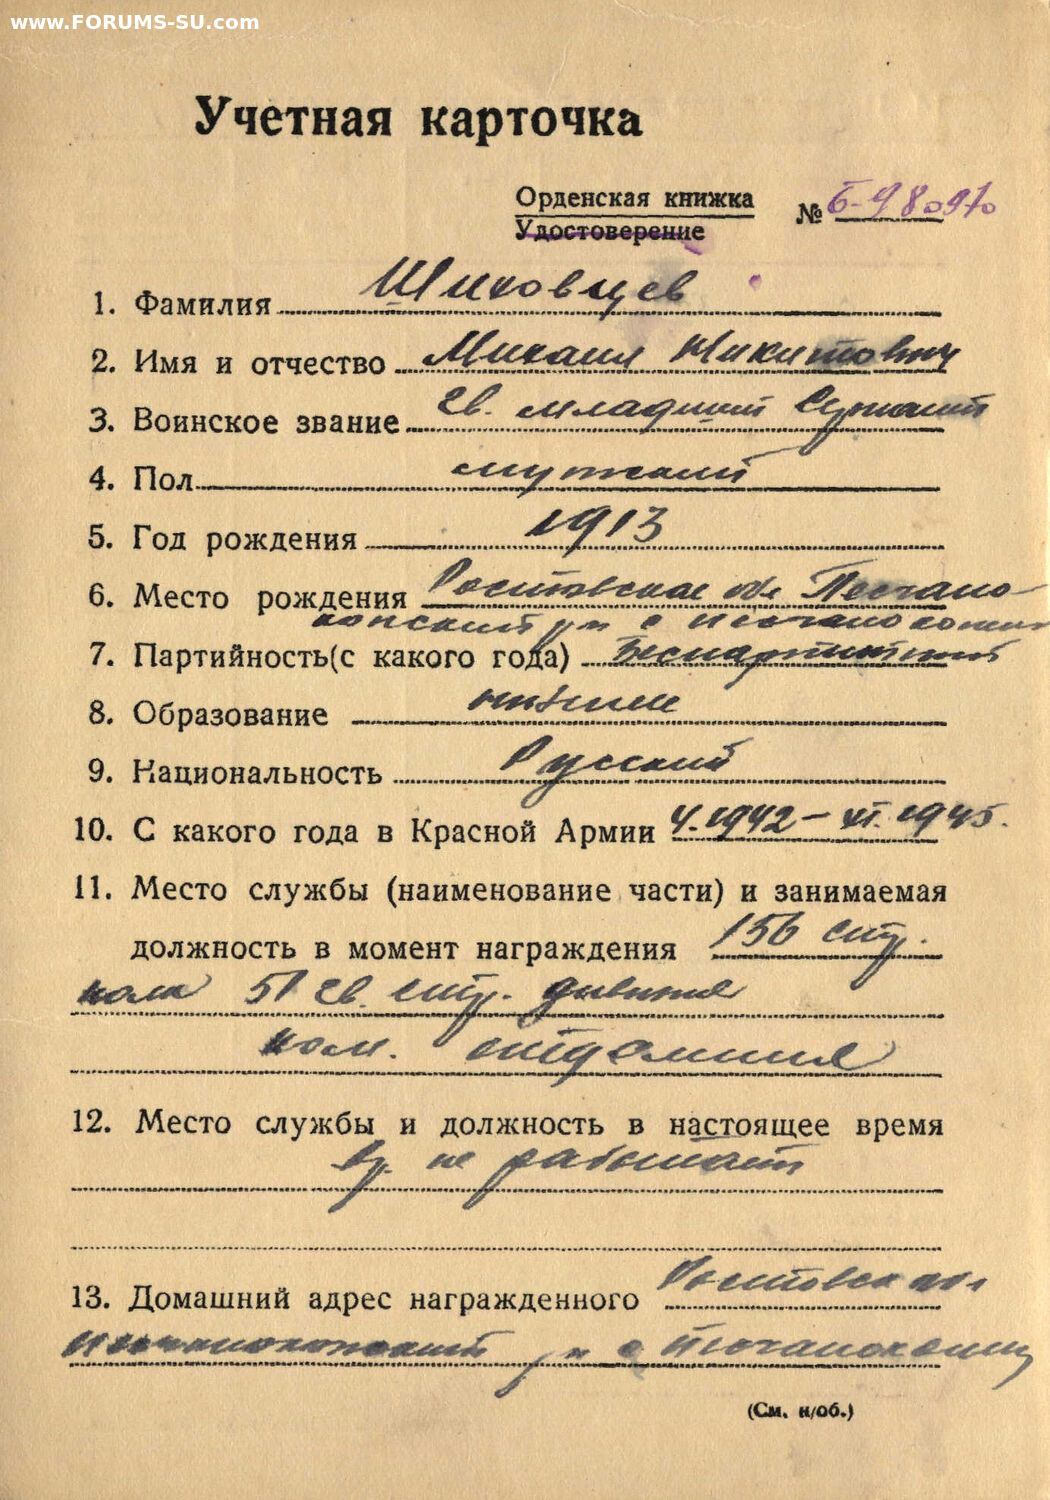 www.FORUMS-SU.com
Учетная карточка
Орденская книжка № Б-980970
Удостоверение
1. Фамилия Шиховцев
2. Имя и отчество Михаил Никитович
3. Воинское звание Гв. младший Сержант
4. Пол мужской
5. Год рождения 1913
6. Место рождения Ростовская обл Песчано-
копский р-н с Песчанокопск
7. Партийность(с какого года) Беспартийный
8. Образование низшее
9. Национальность Русский
10. С какого года в Красной Армии 1942 – XI. 1945.
11. Место службы (наименование части) и занимаемая
должность в момент награждения 156 стр.
полк 51 гв. стр. дивизия
ком. отделения
12. Место службы и должность в настоящее время
вр. не работает
13. Домашний адрес награжденного Ростовская обл
Песчанокопский р-н с Песчанокопск
(См. н/об.)